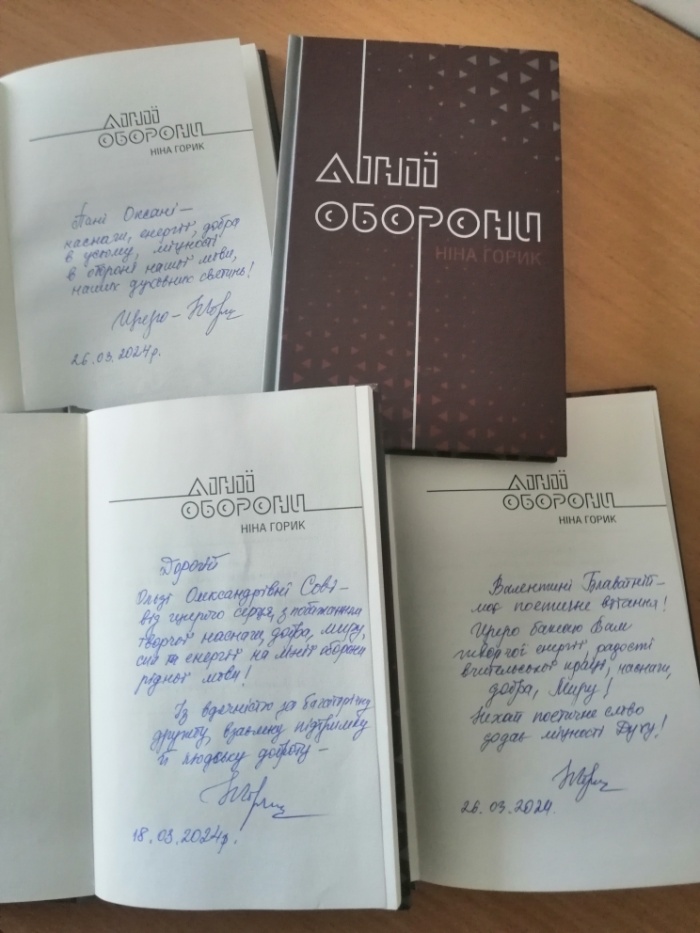 ЛІНІЇ
ОБОРОНИ
НІНА ГОРИК
Пані Оксані –
наснаги, енергії, добра
в усьому, міцності
в обороні нашої мови,
наших духовних святинь!
Щиро –
26.03.2024р.
ЛІНІЇ
ОБОРОНИ
НІНА ГОРИК
ЛІНІЇ
ОБОРОНИ
НІНА ГОРИК
Дорогій
Ользі Олександрівні Сові –
від щирого серця, з побажанням
творчої наснаги, добра, миру,
сил та енергії на лінії оборони
рідної мови!
Із вдячністю за багаторічну
дружбу, взаємну підтримку
й людську доброту –
18.03.2024р.
ЛІНІЇ
ОБОРОНИ
НІНА ГОРИК
Валентині –
моє поетичне вітання!
Щиро бажаю Вам
творчої енергії, радості
вчительської праці, наснаги,
добра, Миру!
Нехай поетичне слово
додає міцності Духу!
26.03.2024.